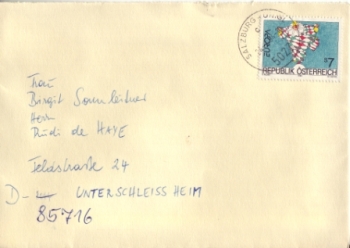 SALZBURG
EUROPA
S7
REPUBLIK ÖSTERREICH
Frau
Birgit Sonnleitner
Herr
Rudi de HAYE
Feldstraße 24
D- UNTERSCHLEISSHEIM
85716